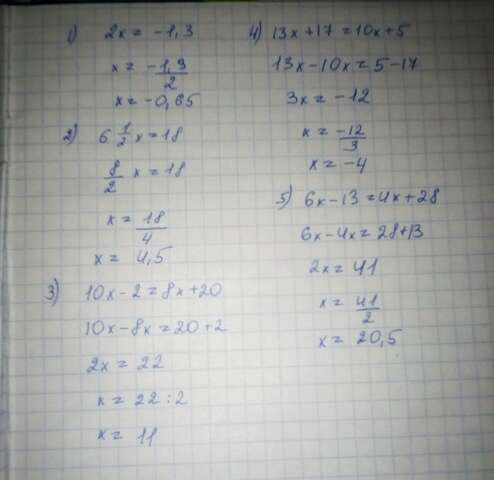 1) 2x = -1,3
x = -1,3/2
x = -0,65
2) 6 1/2 x = 18
8/2 x = 18
x = 18/4
x = 4,5
3) 10x - 2 = 8x + 20
10x - 8x = 20 + 2
2x = 22
x = 22 : 2
x = 11
4) 13x + 17 = 10x + 5
13x - 10x = 5 - 17
3x = -12
x = -12/3
x = -4
5) 6x - 13 = 4x + 28
6x - 4x = 28 + 13
2x = 41
x = 41/2
x = 20,5